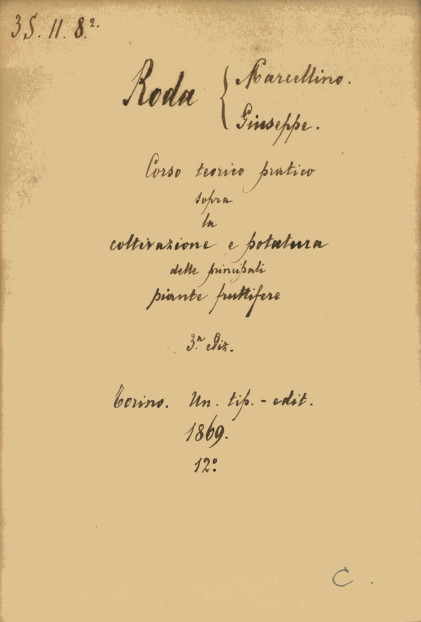 35. 11. 8.²·
Roda { Marcellino.
Giuseppe.
Corso teorico pratico
sopra
la
coltivazione e potatura
delle principali
piante fruttifere
3.ª ediz.
Torino. Un. tip. - edit.
1869.
12º
C.